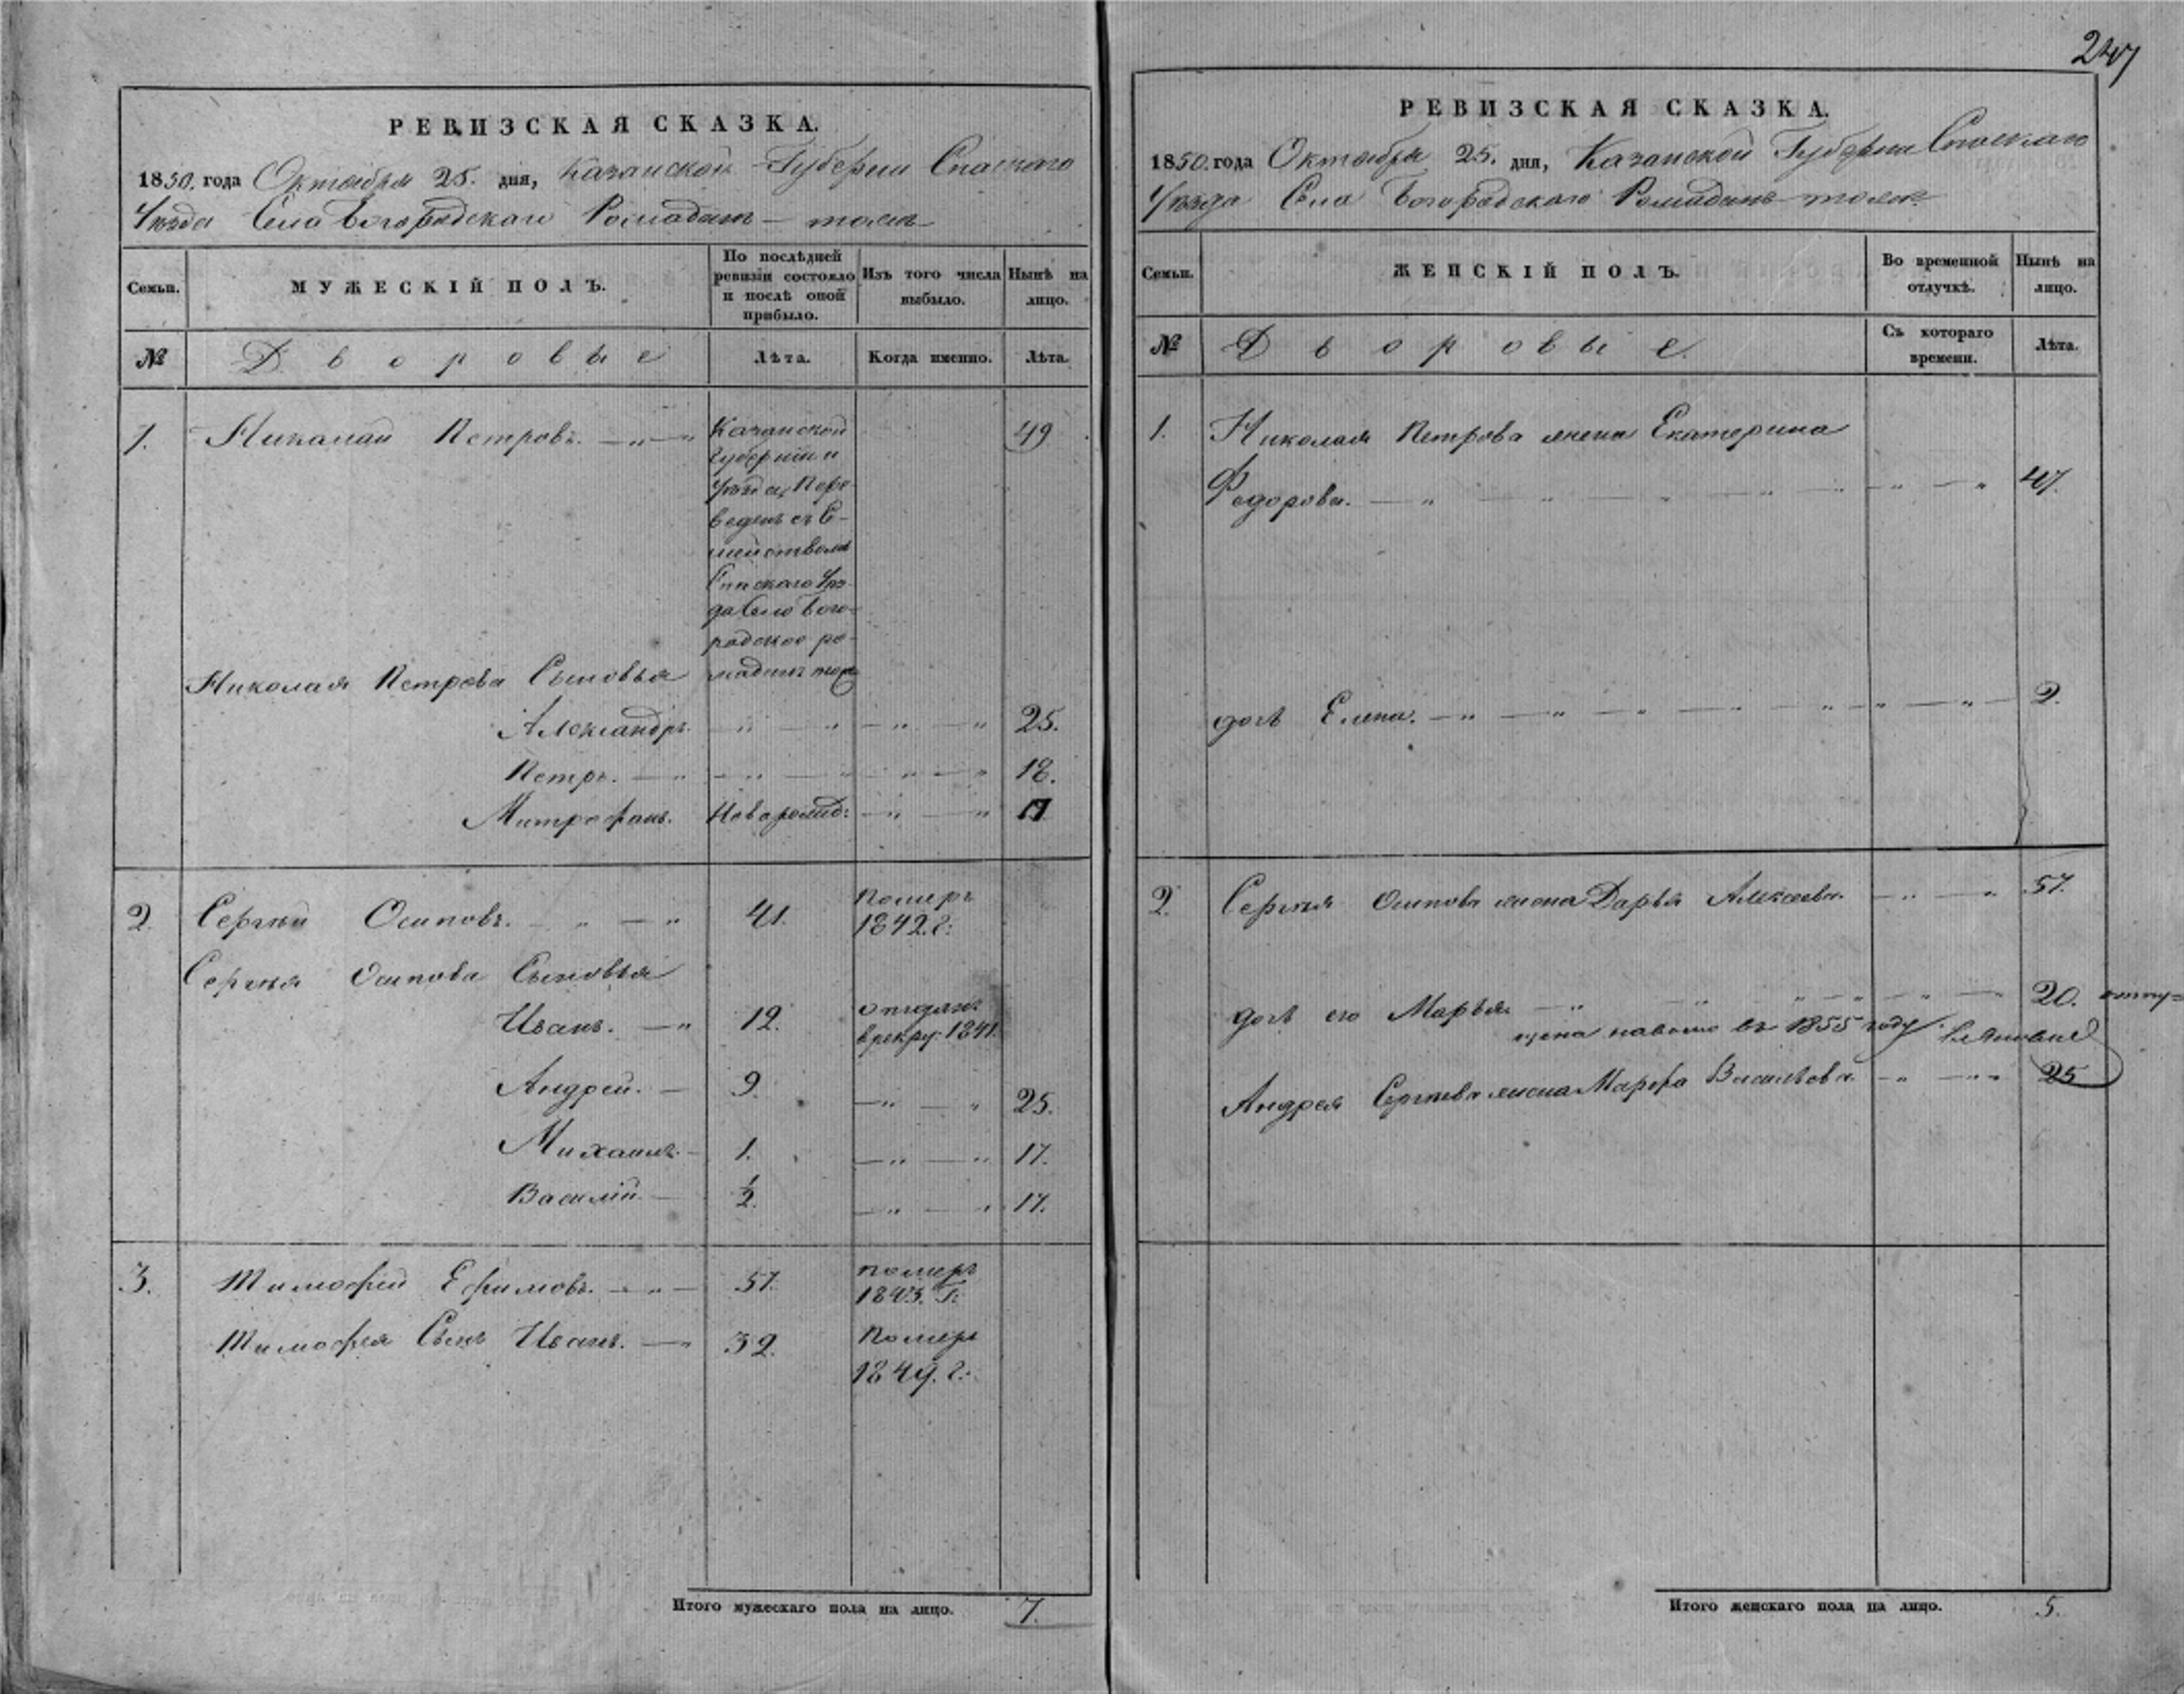 247
РЕВИЗСКАЯ СКАЗКА.
1850. года Октября 25. дня, Казанской Губернии Спаскаго
Уѣзда Села Богородскаго Ромадань тожъ
Семьи.
МУЖЕСКІЙ ПОЛЪ.
По послѣдней
ревизіи состояло
и послѣ оной
прибыло.
Изъ того числа
выбыло.
Нынѣ на
лицо.
№
Дворовые
Лѣта.
Когда именно.
Лѣта.
1. Николай Петровъ. 49
Казанской
Губерніи и
Уѣзда, Пере-
веденъ съ Се-
мействомъ
Спаскаго Уѣз-
да Село Бого-
родское ро-
маданъ тожъ
Николая Петрова Сыновья
Александръ. 25.
Петръ. 18.
Митрофанъ. Новорожд:
2. Сергѣй Осиповъ. 41. Померъ
1842. г:
Сергѣя Осипова Сыновья
Иванъ. 12. отданъ
в рекру: 1841.
Андрей. 9. 25.
Михаилъ. 1. 17.
Василій ½. 17.
3. Тимофей Ефимовъ. 57. померъ
1843. Г:
Тимофея Сынъ Иванъ. 32. Померъ
1849. г:
Итого мужескаго пола на лицо. 7.
РЕВИЗСКАЯ СКАЗКА.
1850. года Октября 25. дня, Казанской Губерніи Спаскаго
Уѣзда Села Богородскаго Ромадань тожъ
Семьи.
ЖЕНСКІЙ ПОЛЪ.
Во временной
отлучкѣ.
Нынѣ на
лицо.
№
Дворовые.
Съ котораго
времени.
Лѣта.
1. Николая Петрова жена Екатерина
Федорова. 47.
дочь Елена. 2.
2. Сергѣя Осипова жена Дарья Алексеева. 57.
дочь его Марья 20. отпу=
щена на волю въ 1855 году
Андрея Сергѣева жена Марфа Васильева. 25
Итого женскаго пола на лицо. 5.